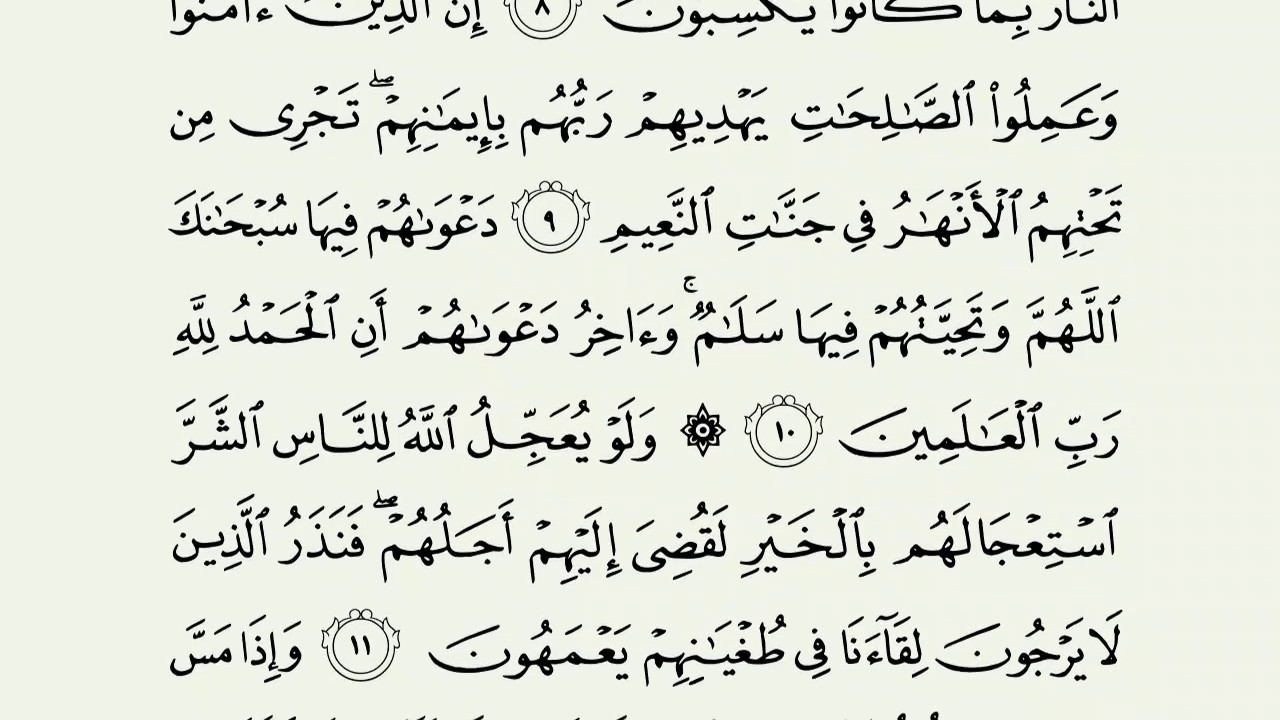 ٱلنَّارُ بِمَا كَانُوا۟ يَكْسِبُونَ ٨ إِنَّ ٱلَّذِينَ ءَامَنُوا۟
وَعَمِلُوا۟ ٱلصَّـٰلِحَـٰتِ يَهْدِيهِمْ رَبُّهُم بِإِيمَـٰنِهِمْ ۖ تَجْرِى مِن
تَحْتِهِمُ ٱلْأَنْهَـٰرُ فِى جَنَّـٰتِ ٱلنَّعِيمِ ٩ دَعْوَىٰهُمْ فِيهَا سُبْحَـٰنَكَ
ٱللَّهُمَّ وَتَحِيَّتُهُمْ فِيهَا سَلَـٰمٌ ۚ وَءَاخِرُ دَعْوَىٰهُمْ أَنِ ٱلْحَمْدُ لِلَّهِ
رَبِّ ٱلْعَـٰلَمِينَ ١٠ ۞ وَلَوْ يُعَجِّلُ ٱللَّهُ لِلنَّاسِ ٱلشَّرَّ
ٱسْتِعْجَالَهُم بِٱلْخَيْرِ لَقُضِىَ إِلَيْهِمْ أَجَلُهُمْ ۖ فَنَذَرُ ٱلَّذِينَ
لَا يَرْجُونَ لِقَآءَنَا فِى طُغْيَـٰنِهِمْ يَعْمَهُونَ ١١ وَإِذَا مَسَّ